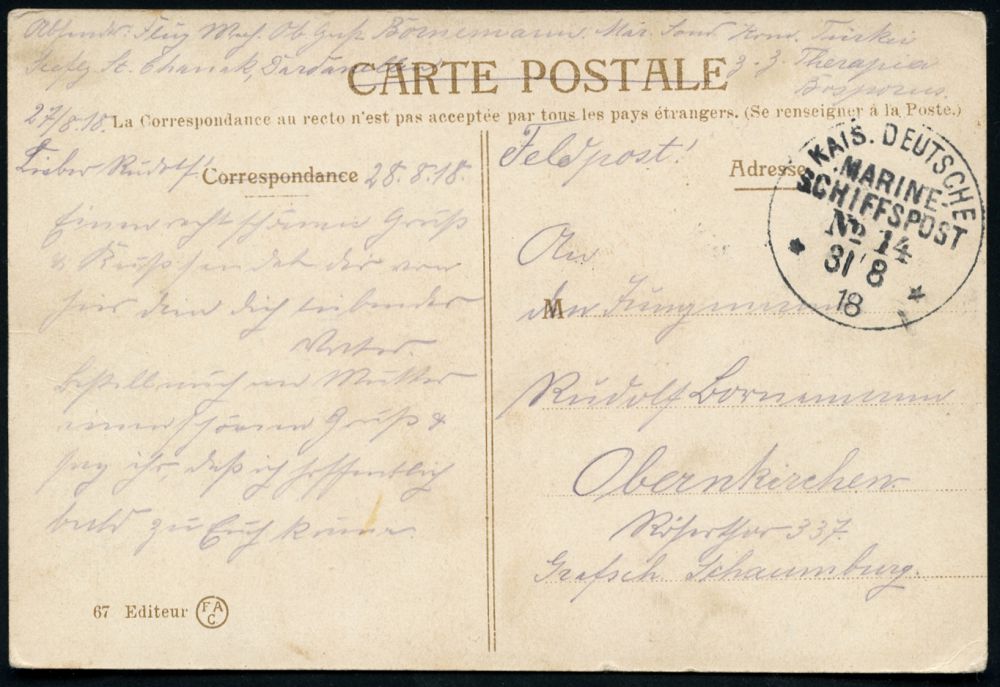 Absender: Flug Mech. Ob. Gast Bornemann. Mar. Sond. Kom. Türkei
St. Chanak, Dardanellen z. Z. Therapia
Bosporus.
CARTE POSTALE
27/8.18.
La Correspondance au recto n'est pas acceptée par tous les pays étrangers. (Se renseigner à la Poste.)
Lieber Rudolf!
Correspondance
28.8.18.
Einen recht schönen Gruß
& Kuß sendet dir von
hier dein dich liebender
Vater.
Bestell auch an Mutter
einen schönen Gruß &
sag ihr, daß ich hoffentlich
bald zu Euch komme.
67 Editeur FAC
Feldpost!
Adresse
KAIS. DEUTSCHE
MARINE-
SCHIFFSPOST
No 14
31 8
18
An
M
den Jungmann
Rudolf Bornemann
Obernkirchen
337.
Grafsch. Schaumburg.